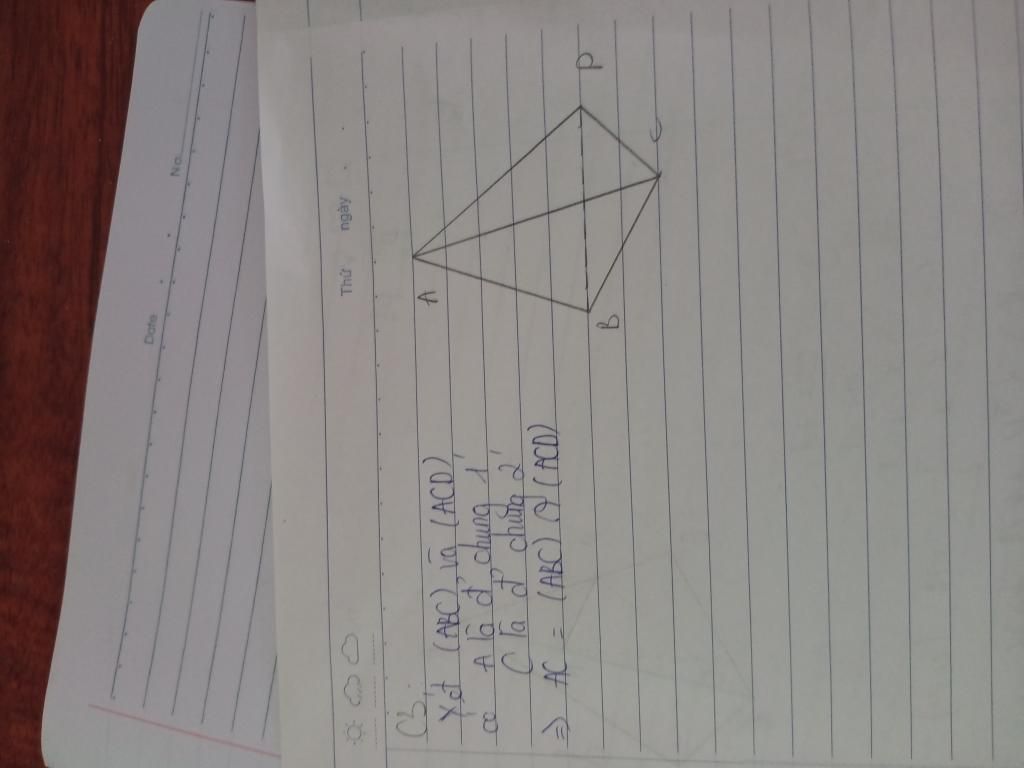 No.
Date
Thứ ngày
C3.
Xét (ABC) và (ACD)
có A là đ' chung 1'
C là đ' chung 2'
=> AC = (ABC) ∩ (ACD)
A
B
C
D